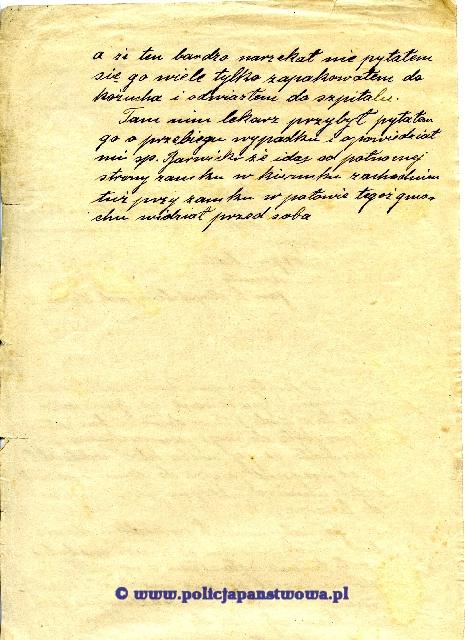 a że ten bardzo narzekał nie pytałem
się go wiele tylko zapakowałem do
kożucha i odwiozłem do szpitala.
Tam nim lekarz przybył pytałem
go o przebiegu wypadku i opowiedział
mi śp. że idąc od północnej
strony zamku w kierunku zachodnim
tuż przy zamku w połowie tegoż gma-
chu widział przed sobą
© www.policjapanstwowa.pl